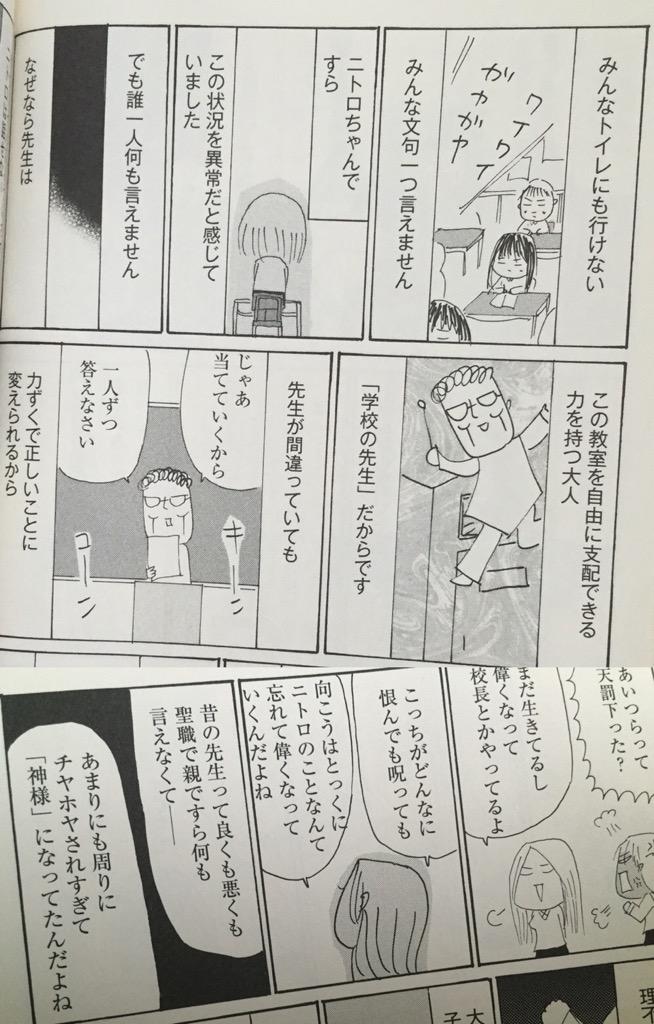 みんなトイレにも行けない
ワイワイ
ガヤガヤ
みんな文句一つ言えません
ニトロちゃんで
すら
この状況を異常だと感じて
いました
でも誰一人何も言えません
なぜなら先生は
この教室を自由に支配できる
力を持つ大人
「学校の先生」だからです
先生が間違っていても
じゃあ
当てていくから
一人ずつ
答えなさい
キーン
コーン
力ずくで正しいことに
変えられるから
あいつらって
天罰下った？
まだ生きてるし
偉くなって
校長とかやってるよ
こっちがどんなに
恨んでも呪っても
向こうはとっくに
ニトロのことなんて
忘れて偉くなって
いくんだよね
昔の先生って良くも悪くも
聖職で親ですら何も
言えなくて――
あまりにも周りに
チヤホヤされすぎて
「神様」になってたんだよね